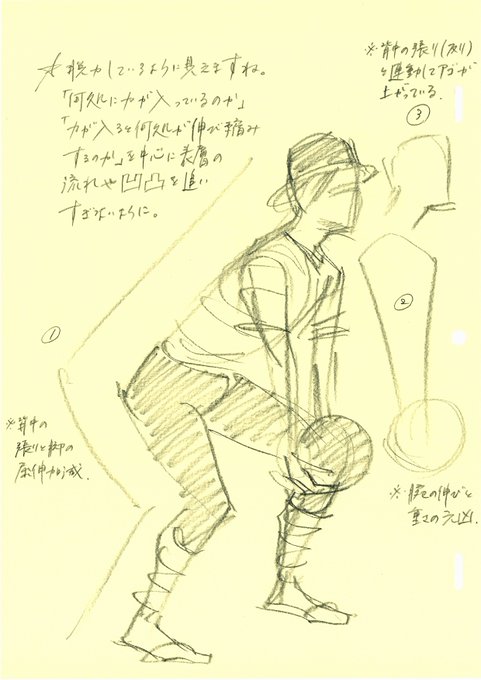 脱力しているように見えますね。
「何処に力が入っているのか」
「力が入ると何処が伸び縮み
するのか」を中心に表層の
流れや凹凸を追い
すぎないように。
※背中の張り(反り)
と連動してアゴが
上がっている。
③
②
①
※背中の
張りと脚の
屈伸が
※腕の伸びと
重さの元凶.